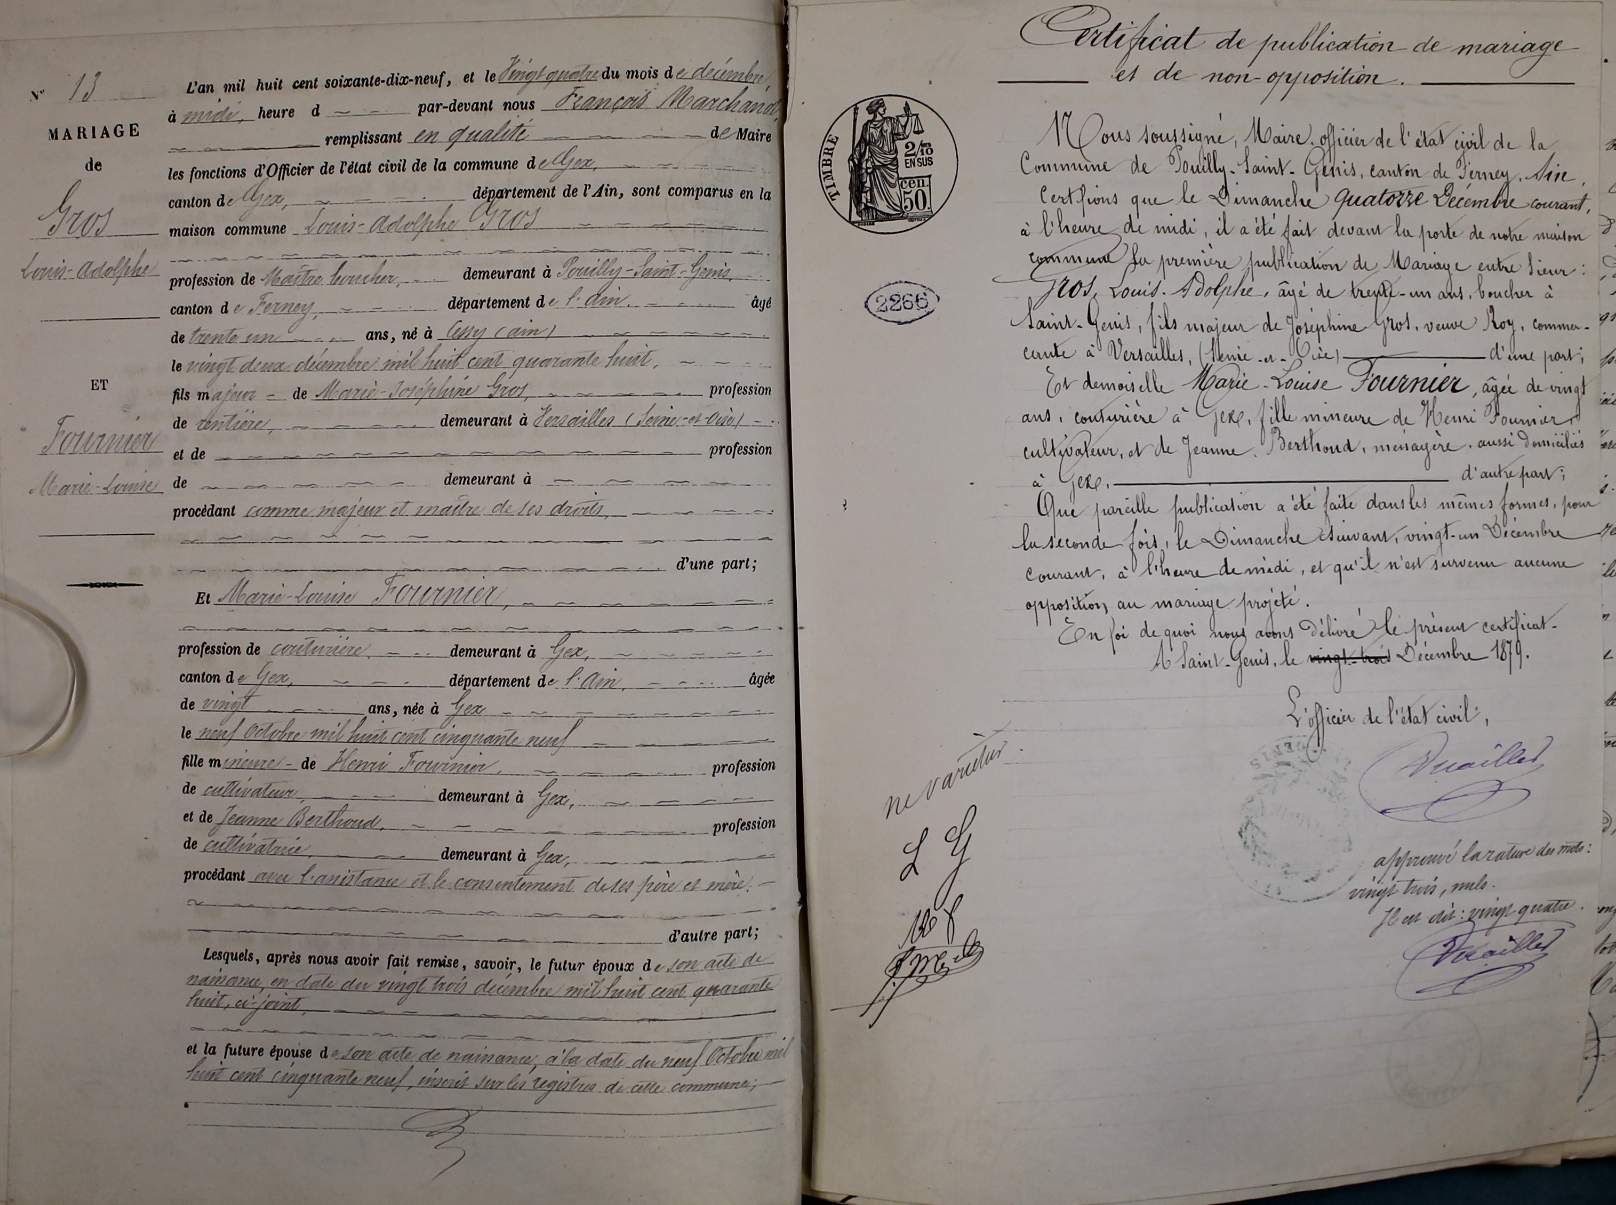 N° 13
MARIAGE
de
Gros
Louis-Adolphe
ET
Fournier
Marie-Louise
L'an mil huit cent soixante-dix-neuf, et le Vingt quatre du mois de décembre
à midi, heure d par-devant nous François Marchand,
remplissant en qualité de Maire
les fonctions d'Officier de l'état civil de la commune de Gex,
canton de Gex, département de l'Ain, sont comparus en la
maison commune Louis-Adolphe Gros
profession de Maître boucher, demeurant à Pouilly-Saint-Genis,
canton de Ferney, département de l'Ain. âgé
de trente un ans, né à Cessy (ain)
le vingt deux décembre mil huit cent quarante huit,
fils majeur de Marie-Joséphine Gros, profession
de rentière, demeurant à Versailles (Seine-et-Oise)
et de profession
de demeurant à
procédant comme majeur et maître de ses droits,
d'une part;
Et Marie-Louise Fournier,
profession de couturière, demeurant à Gex,
canton de Gex, département de l'Ain, âgée
de vingt ans, née à Gex
le neuf Octobre mil huit cent cinquante neuf
fille mineure de Henri Fournier, profession
de cultivateur, demeurant à Gex,
et de Jeanne Berthoud, profession
de cultivatrice, demeurant à Gex,
procédant avec l'assistance et le consentement de ses père et mère.
d'autre part;
Lesquels, après nous avoir fait remise, savoir, le futur époux de son acte de
naissance, en date du vingt trois décembre mil huit cent quarante
huit, ci-joint,
et la future épouse de son acte de naissance, à la date du neuf Octobre mil
huit cent cinquante neuf, inscrit sur les registres de cette commune;
Certificat de publication de mariage
et de non-opposition.
TIMBRE
2/10
EN SUS
50 cen.
2266
Nous soussigné, Maire, officier de l'état civil de la
Commune de Pouilly-Saint-Genis, canton de Ferney, Ain,
Certifions que le Dimanche quatorze Décembre courant,
à l'heure de midi, il a été fait devant la porte de notre maison
commune la première publication de Mariage entre Sieur :
Gros, Louis-Adolphe, âgé de trente-un ans, boucher à
Saint-Genis, fils majeur de Joséphine Gros, veuve Roy, commer-
cante à Versailles, (Seine-et-Oise) d'une part;
Et demoiselle Marie-Louise Fournier, âgée de vingt
ans, couturière à Gex, fille mineure de Henri Fournier,
cultivateur, et de Jeanne Berthoud, ménagère, aussi domiciliés
à Gex, d'autre part;
Que pareille publication a été faite dans les mêmes formes, pour
la seconde fois, le Dimanche suivant, vingt-un Décembre
courant, à l'heure de midi, et qu'il n'est survenu aucune
opposition au mariage projeté.
En foi de quoi nous avons délivré le présent certificat.
A Saint-Genis, le vingt-trois Décembre 1879.
L'officier de l'état civil,
ne varietur
L G
approuvé la rature des mots:
vingt trois, nuls.
Il est dit: vingt quatre.